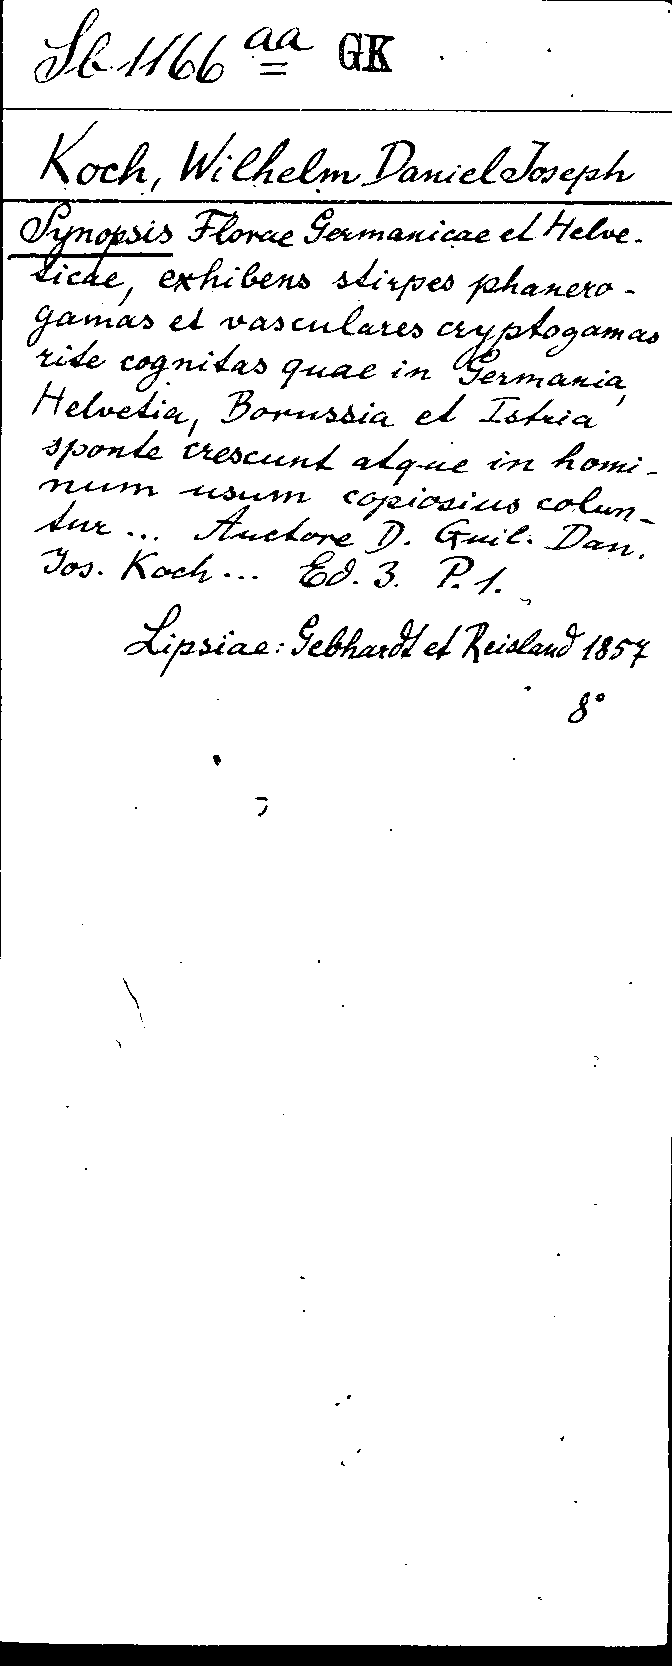 Sb 1166 aa GK
Koch, Wilhelm Daniel Joseph
Synopsis Florae Germanicae et Helve-
ticae, exhibens stirpes phanero-
gamas et vasculares cryptogamas
rite cognitas quae in Germania,
Helvetia, Borussia et Istria
sponte crescunt atque in homi-
num usum copiosius colun-
tur... Auctore D. Guil. Dan.
Jos. Koch... Ed. 3. P. 1.
Lipsiae: Gebhardt et Reisland 1857
8°